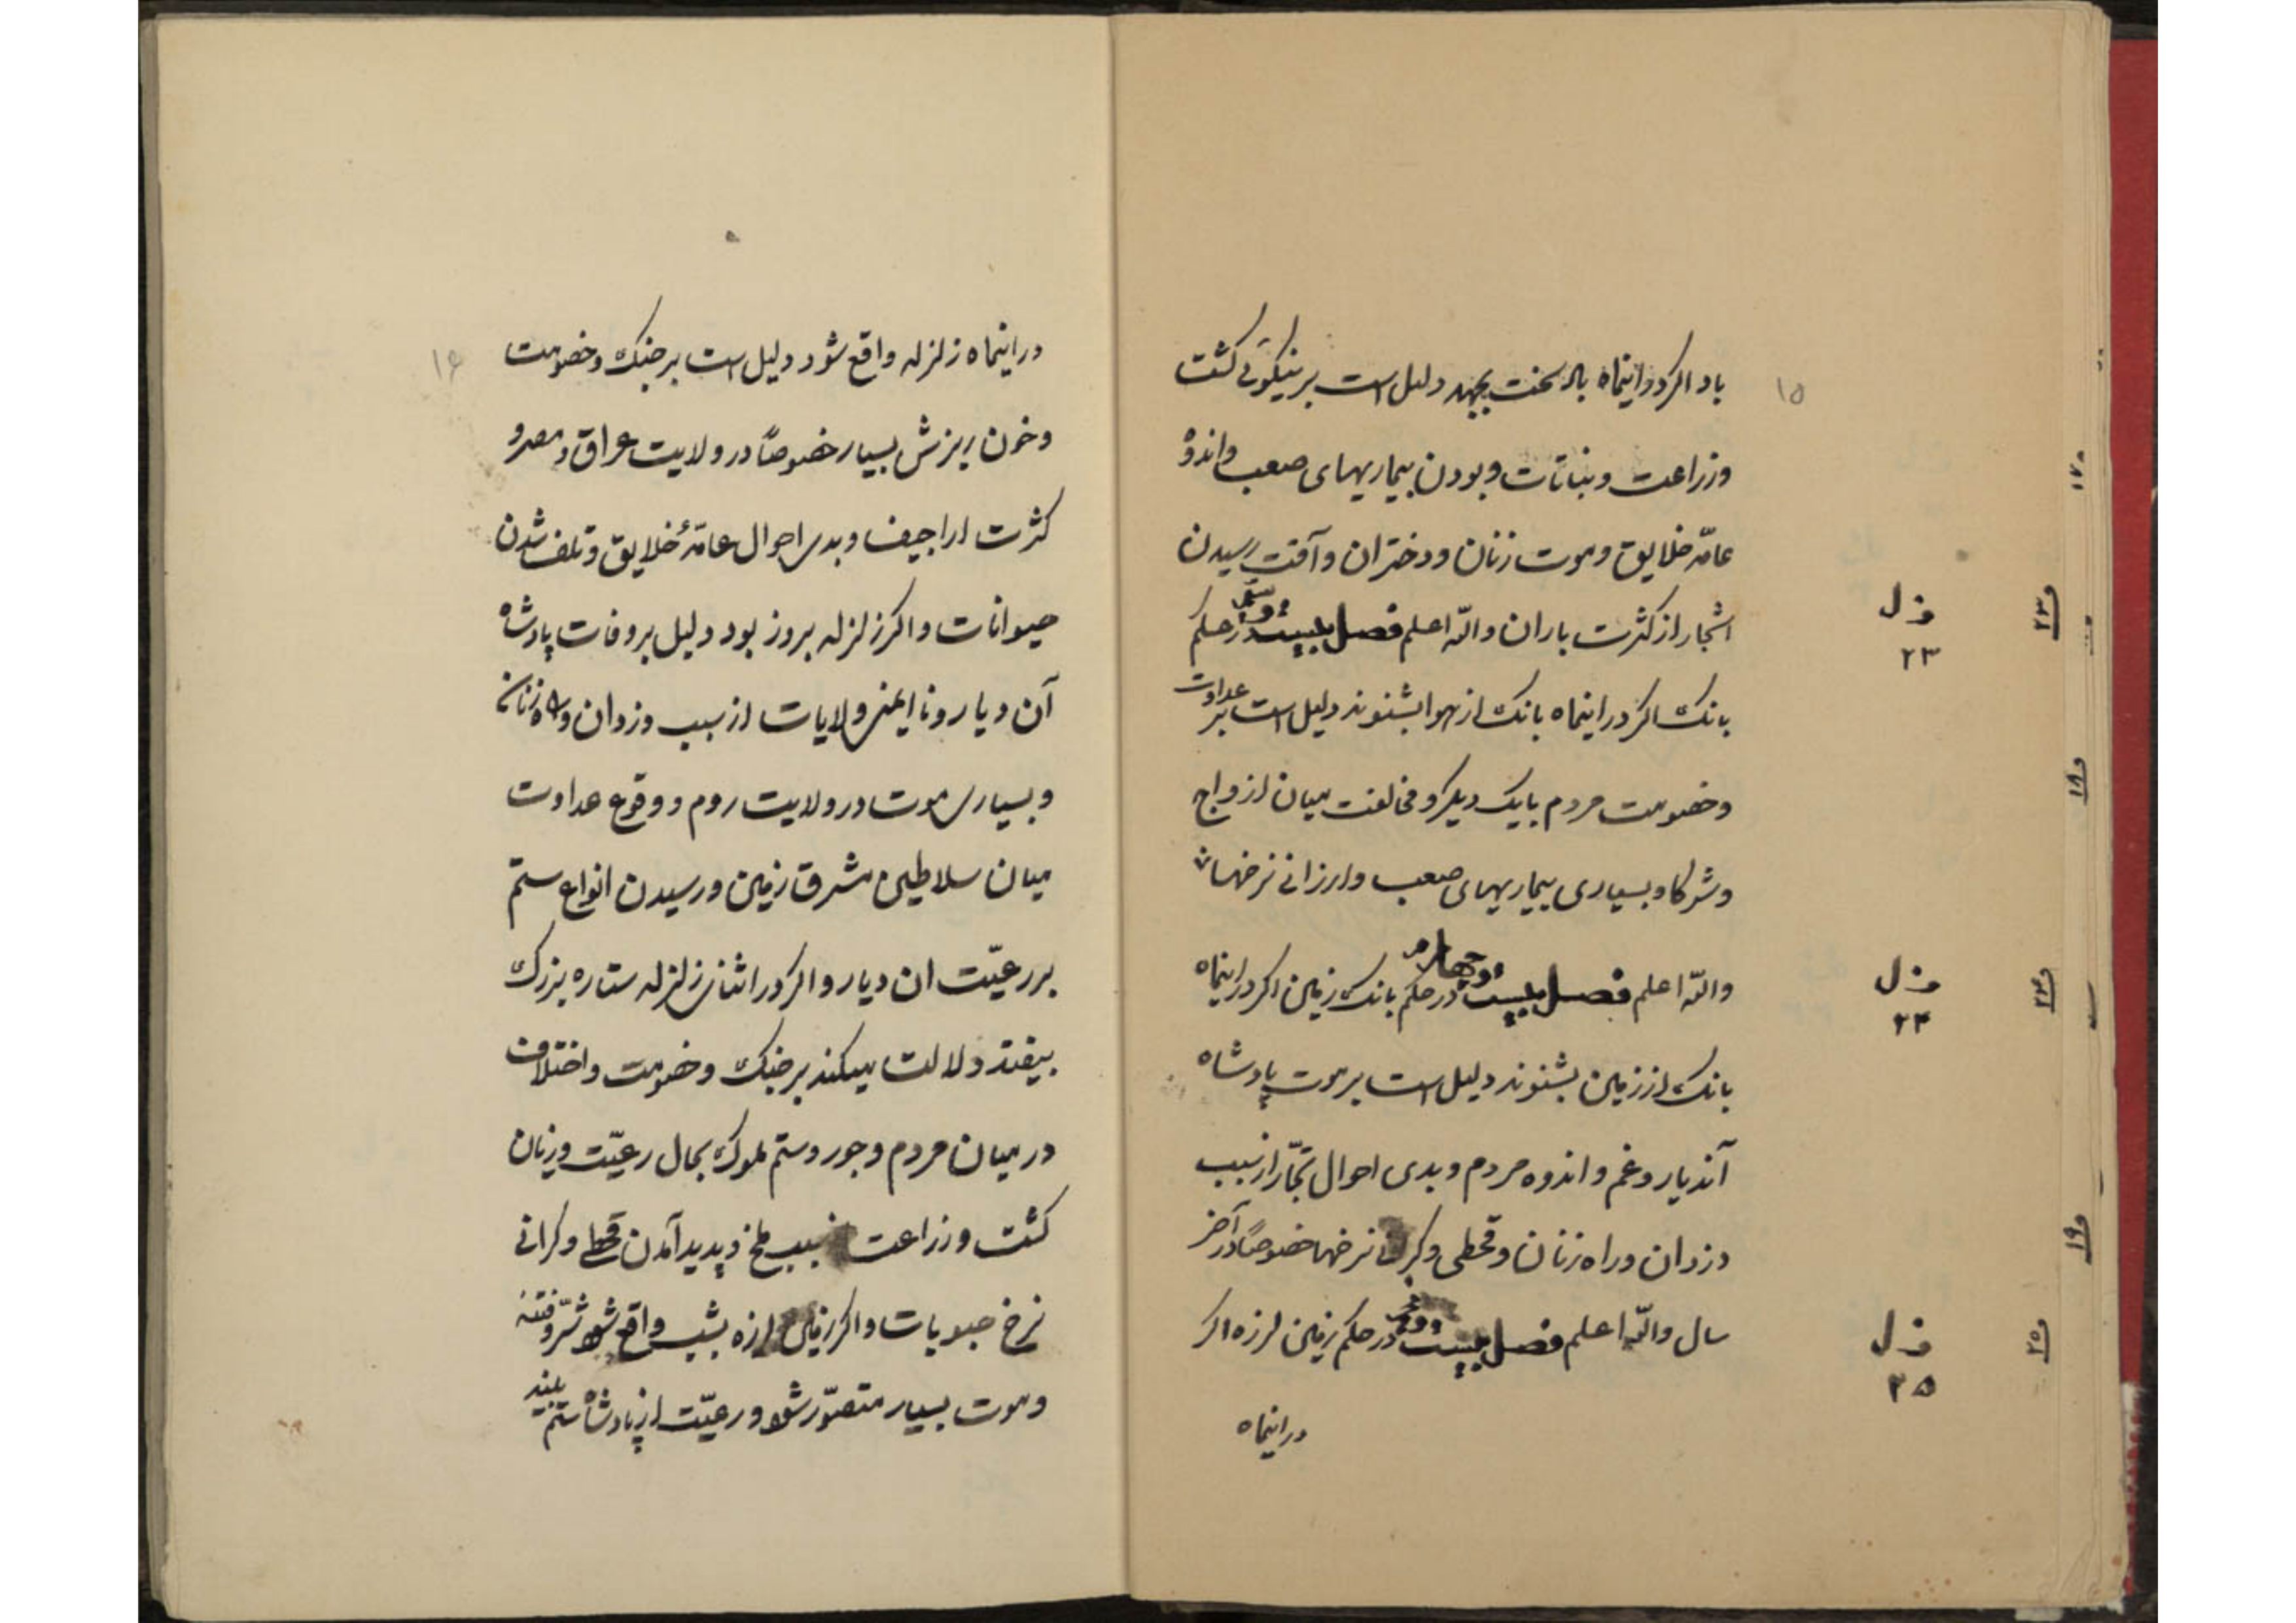 ۱۵
باد اکر دراینماه باد سخت بجهد دلیل است بر نیکوئی کشت
وزراعت و نباتات و بودن بیماریهای صعب و اندوه
عامّه خلایق و موت زنان و دختران و آفت رسیدن
اشجار از کثرت باران واللّه اعلم فصل بیست و سیّم در حکم
بانک اکر دراینماه بانک از هوا بشنوند دلیل است بر عداوت
و خصومت مردم با یک دیکر و مخالفت میان ازواج
و شرکا و بسیاری بیماریهای صعب و ارزانی نرخها
واللّه اعلم فصل بیست و چهارم در حکم بانک زمین اکر دراینماه
بانک از زمین بشنوند دلیل است بر موت پادشاه
آندیار و غم و اندوه مردم و بدی احوال تجّار از سبب
دزدان و راه زنان و قحطی و کرانی نرخها خصوصاً در آخر
سال واللّه اعلم فصل بیست و پنجم در حکم زمین لرزه اکر
دراینماه
ف ل
۲۳
ف ل
۲۴
ف ل
۲۵
۱۷
۲۳
۱۸
۲۴
۱۹
۲۵
۱۶
دراینماه زلزله واقع شود دلیل است بر جنک و خصومت
و خون ریزش بسیار خصوصاً در ولایت عراق و مصر و
کثرت اراجیف و بدی احوال عامّهٔ خلایق و تلف شدن
حیوانات و اکر زلزله بروز بود دلیل بر وفات پادشاه
آن دیار و نا ایمنی ولایات از سبب دزدان و راه زنان
و بسیاری موت در ولایت روم و وقوع عداوت
میان سلاطین مشرق زمین و رسیدن انواع ستم
بر رعیّت ان دیار و اکر در اثنای زلزله ستاره بزرک
بیفتد دلالت میکند بر جنک و خصومت و اختلاف
در میان مردم و جور و ستم ملوک بحال رعیّت و زیان
کشت و زراعت بسبب ملخ و پدید آمدن قحط و کرانی
نرخ حبوبات و اکر زمین لرزه بشب واقع شود شرّ و فتنه
و موت بسیار متصوّر شود و رعیّت از پادشاه ستم بیند